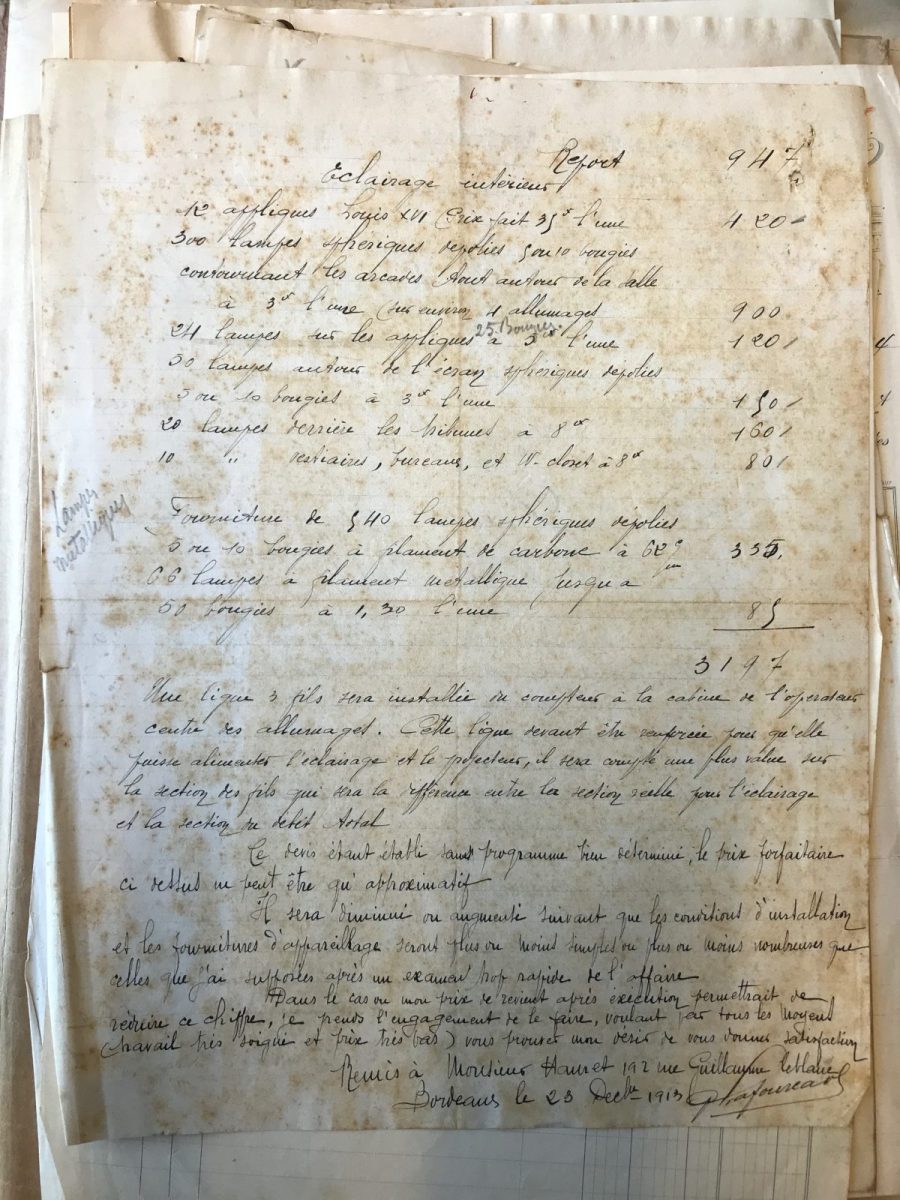 Report 947
Eclairage intérieur
12 appliques Louis XVI Prix fait 35 f l'une 420
300 lampes sphériques dépolies 5 ou 10 bougies
contournant les arcades tout autour de la salle
à 3 f l'une (sur environ 4 allumages 900
25 Bougies
24 lampes sur les appliques à 5 f l'une 120
50 lampes autour de l'écran sphériques dépolies
5 ou 10 bougies à 3 f l'une 150
20 lampes derrière les tribunes à 8 f 160
10 " vestiaires, bureaux, et W-closet à 8 f 80
Lampes
métalliques
Fourniture de 540 lampes sphériques dépolies
5 ou 10 bougies à filament de carbone à 62 335
66 lampes à filament métallique jusqu'a
50 bougies à 1,30 l'une 85
3197
Une ligne 3 fils sera installée du compteur à la cabine de l'operateur
centre des allumages. Cette ligne devant être renforcée pour qu'elle
puisse alimenter l'éclairage et le projecteur, il sera compté une plus value sur
la section des fils qui sera la différence entre la section réelle pour l'éclairage
et la section du debit total
Ce devis étant établi sans programme bien déterminé, le prix forfaitaire
ci dessus ne peut être qu'approximatif
Il sera diminué ou augmenté suivant que les conditions d'installation
et les fournitures d'appareillage seront plus ou moins simples ou plus ou moins nombreuses que
celles que j'ai supposées après un examen trop rapide de l'affaire
Dans le cas ou mon prix de revient après éxécution permettrait de
réduire ce chiffre, je prends l'engagement de le faire, voulant par tous les moyens
(travail très soigné et prix très bas) vous prouver mon désir de vous donner satisfaction
Remis à Monsieur 192 rue Guillaume Leblanc
Bordeaux le 23 Decbre 1913